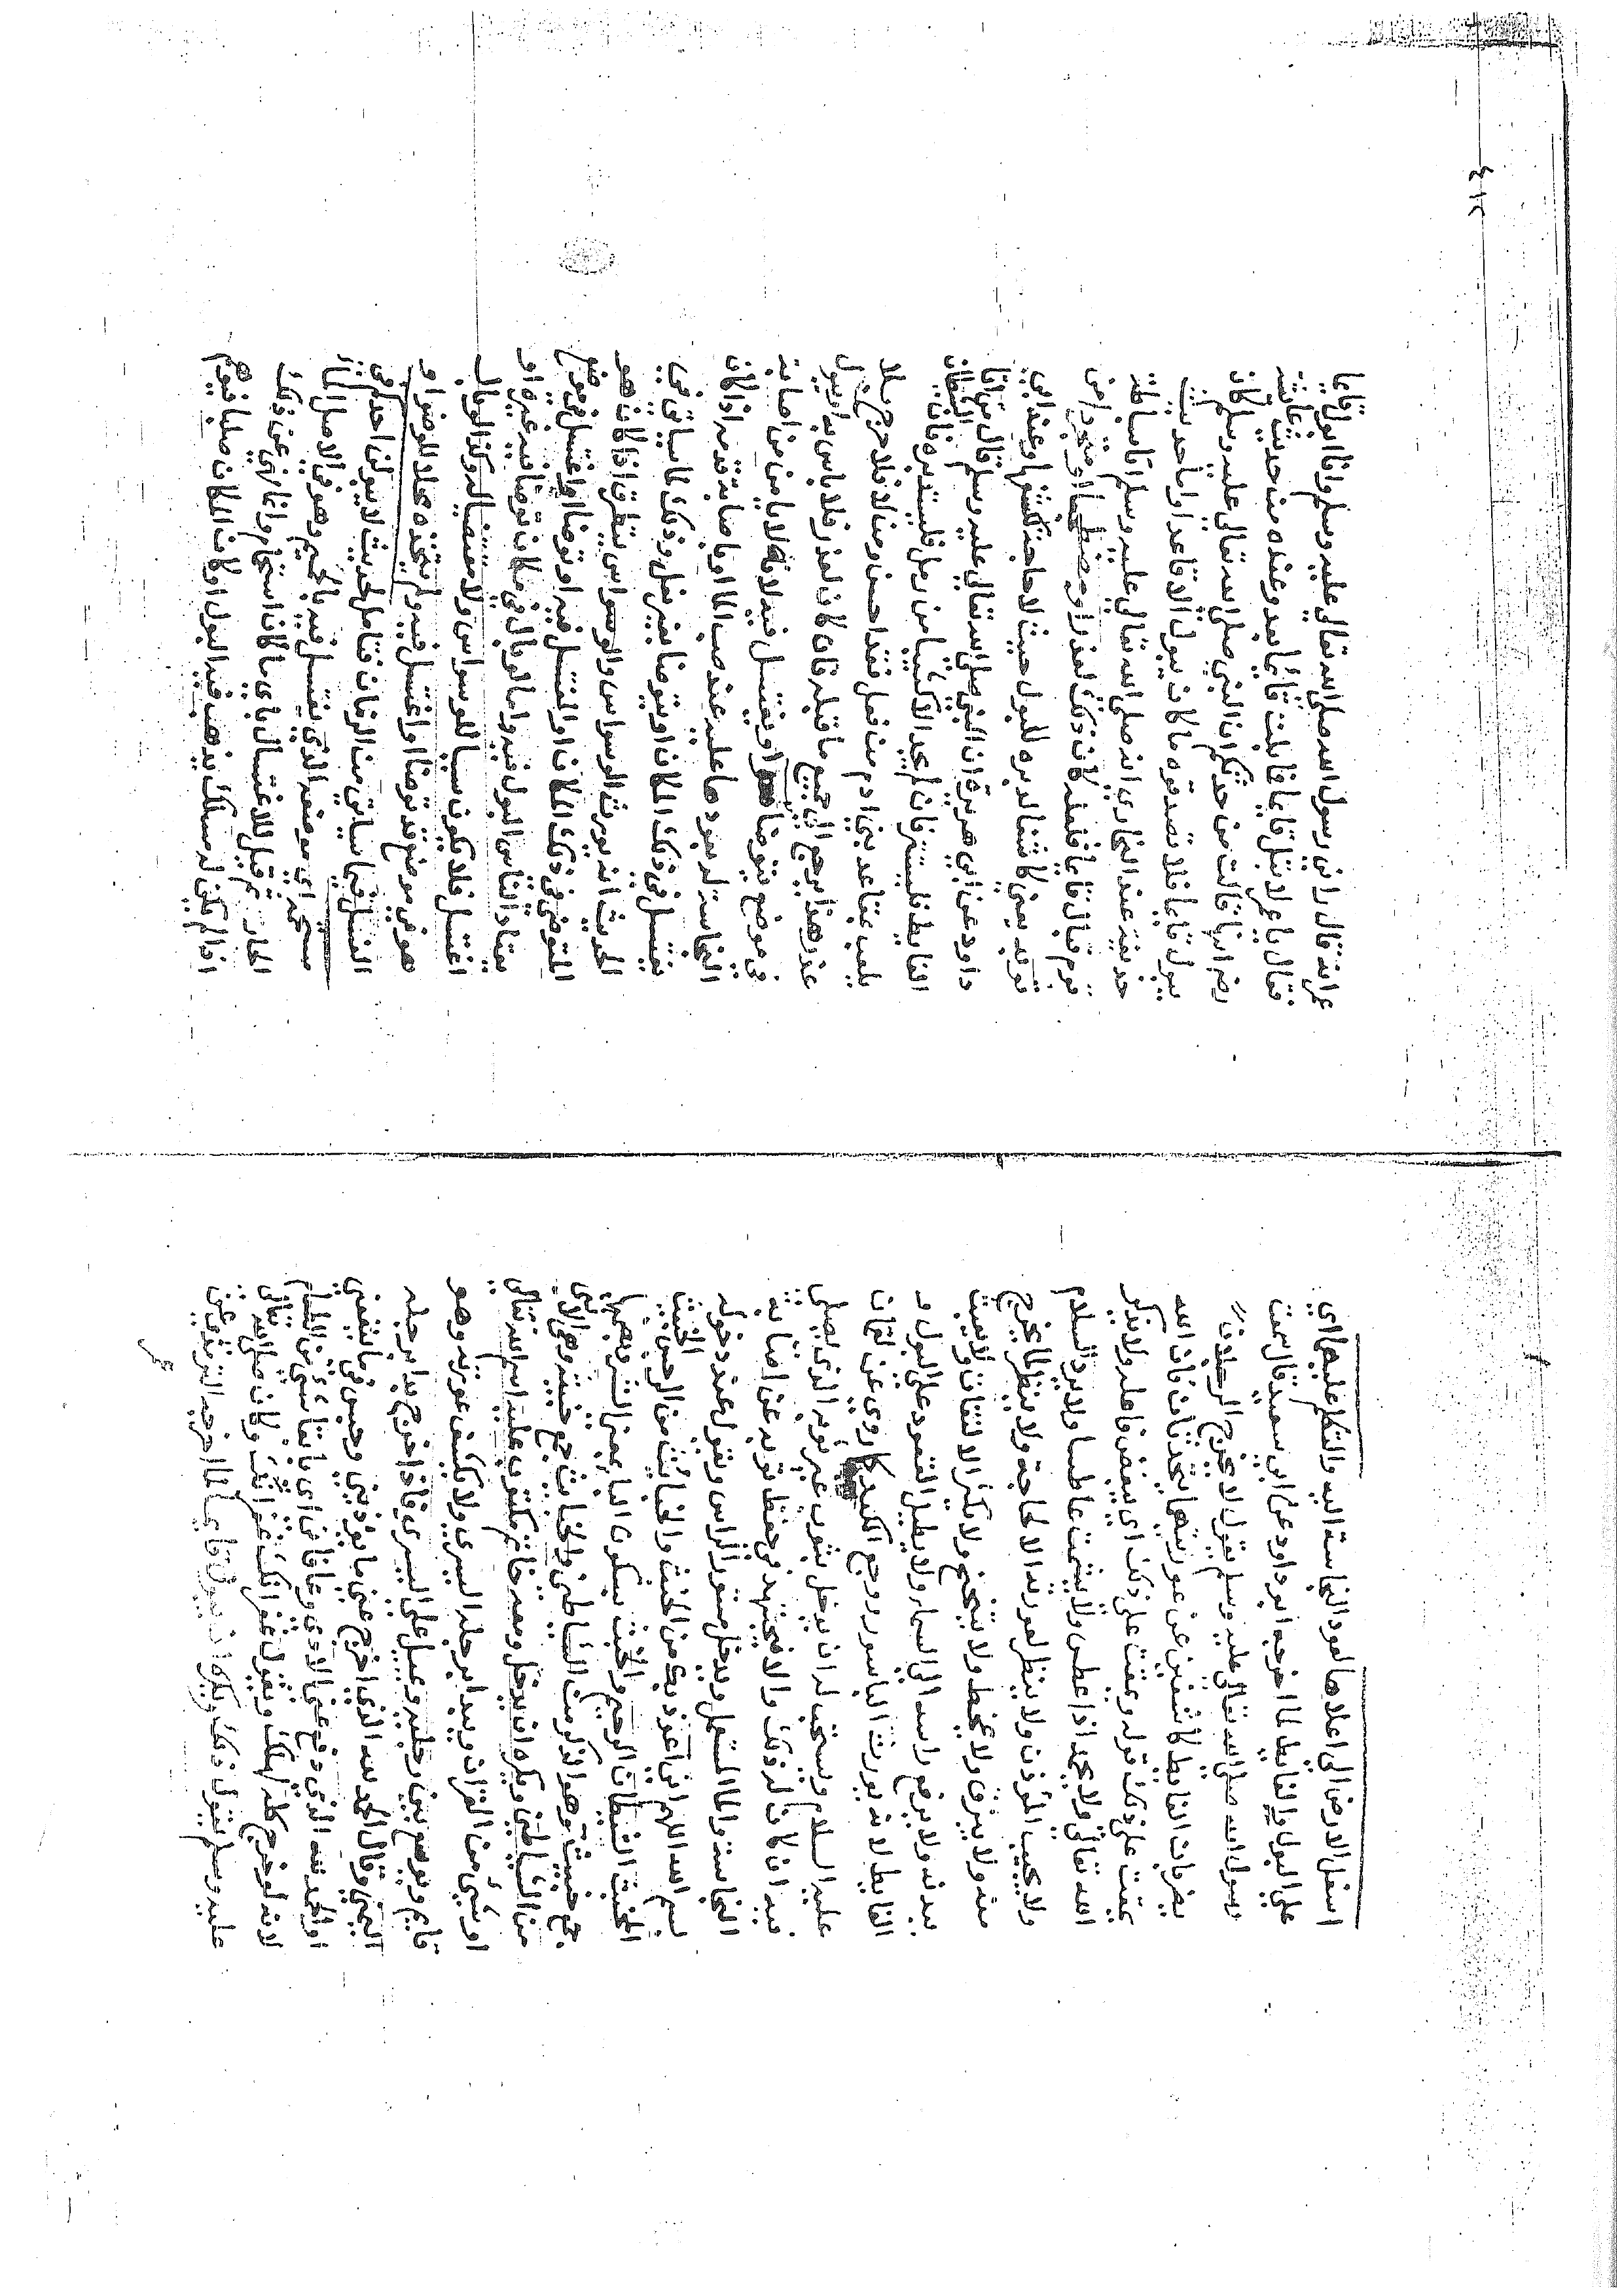 اسفل الارض الى اعلاها لعود النجاسة اليه والتكلم عليهما اي
على البول والغايط لما اخرجه ابو داود عن ابي سعيد قال سمعت
رسول الله صلى الله تعالى عليه وسلم يقول لا يخرج الرجلان
يضربان الغايط كاشفين عن عورتهما يتحدثان فان الله
يمقت على ذلك قوله يمقت على ذلك اي يبغض فاعله ولا يذكر
الله تعالى ولا يحمد اذا عطس ولا يشمت عاطسا ولا يرد السلام
ولا يجيب المؤذن ولا ينظر لعورته الا لحاجة ولا ينظر لما يخرج
منه ولا يبزق ولا يمخط ولا يتنحنح ولا يكثر الالتفات ولا يعبث
ببدنه ولا يرفع راسه الى السماء ولا يطيل القعود على البول و
الغايط لانه يورث الباسور ووجع الكبد كما روي عن لقمان
عليه السلام ويستحب له ان يدخل بثوب غير ثوبه الذي يصلي
فيه ان كان له ذلك والا فيجتهد في حفظ ثوبه عن اصابة
النجاسة والماء المستعمل ويدخل مستور الراس ويقول عند دخوله
بسم الله اللهم اني اعوذ بك من الخبث والخبائث من الرجس النجس
الخبث الشيطان الرجيم والخبث بسكون الباء بمعنى الشر وبضمها
جمع خبيث وهو الذكر من الشياطين والخبائث جمع خبيثة وهي الانثى
من الشياطين ويكره ان يدخل ومعه خاتم مكتوب عليه اسم الله تعالى
او شيء من القران ويبدا برجله اليسرى ولا يكشف عورته وهو
قايم ويوسع بين رجليه ويميل على اليسرى فاذا خرج بدا برجله
اليمنى وقال الحمد لله الذي اخرج عني ما يؤذيني وحبس في ما ينفعني
او الحمد لله الذي دفع عني الاذى وعافاني اي بابقاء شيء من الطعام
لانه لو خرج كله لهلك ويقول غفرانك وكان صلى الله تعالى
عليه وسلم يقول ذلك ويكره ان يبول قايما لما اخرجه الترمذي عن
عمر انه قال راني رسول الله صلى الله تعالى عليه وسلم وانا ابول قايما
فقال يا عمر لا تبل قايما فما بلت قايما بعد وعنده من حديث عائشة
رضي الله انها قالت من حدثكم ان النبي صلى الله تعالى عليه وسلم كان
يبول قايما فلا تصدقوه ما كان يبول الا قاعدا واما حديث
حذيفة عند البخاري انه صلى الله تعالى عليه وسلم اتى سباطة
قوم فبال قايما فلعله كان ذلك لعذر او مضطجعا او متجرد عن
ثوبه يعني كاشفا لدبره للبول حيث لا حاجة لكشفها وعند ابي
داود عن ابي هريرة ان النبي صلى الله تعالى عليه وسلم قال من اتى
الغايط فليستتر فان لم يجد الا كثيبا من رمل فليستدبره فان الشيطان
يلعب بمقاعد بني ادم من فعل فقد احسن ومن لا فلا حرج الا
عذر هذا يرجع الى جميع ما قبله فان كان لعذر فلا باس به او يبول
في موضع يتوضا او يغتسل فيه لانه لا يامن من اصابة
النجاسة له بعودها عليه عند صب الماء او اصابة قدمه اذا كان
يغتسل في ذلك المكان او يتوضا بغير نعل وذلك لما سياتي في
الحديث انه يورث الوسواس والوسواس يتطرق اذا كان هو
المتوضي في ذلك المكان او المغتسل فيه او توضا او اغتسل في موضع
معتاد الناس البول فيه واما لو بال في مكان توضا فيه غيره او
اغتسل فلا يكون سببا للوسواس ولا مفضيا له وكذا لو بال
هو في موضع قد توضا او اغتسل فيه ولم يتخذه محلا للوضوء او
الغسل فيما سياتي من الزمان فتامل لحديث لا يبولن احدكم في
مستحمه اي موضعه الذي يغتسل فيه بالحميم وهو في الاصل الماء
الحار ثم قيل للاغتسال باي ما كان استحمام وانما نهي عن ذلك
اذا لم يكن له مسلك يذهب فيه البول او كان المكان صلبا فيوهم